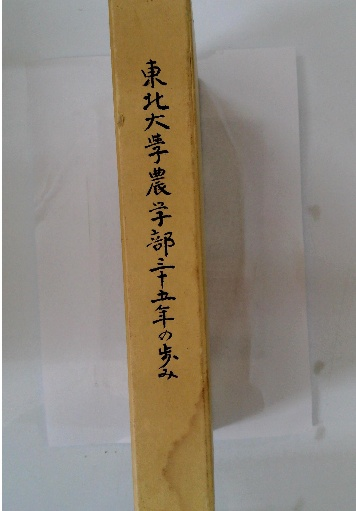 東北大學農学部三十五年の歩み